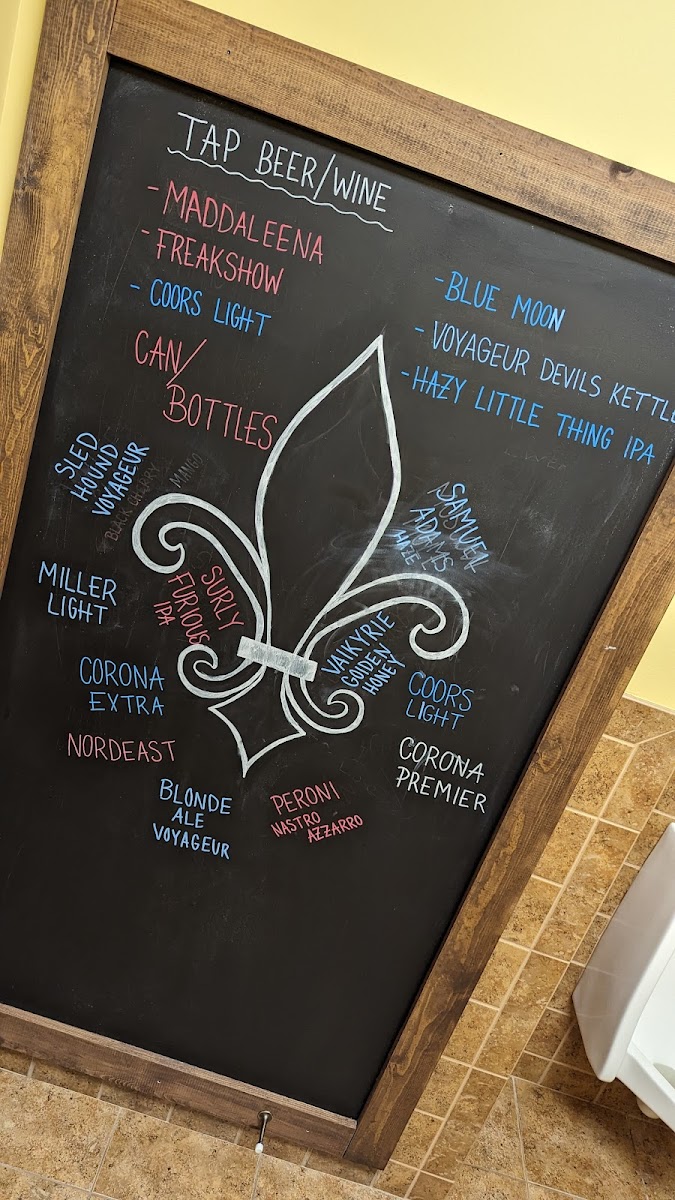 TAP BEER/WINE
- MADDALEENA
- FREAKSHOW
- COORS LIGHT
- BLUE MOON
- VOYAGEUR DEVILS KETTLE
- HAZY LITTLE THING IPA
CAN/
BOTTLES
SLED
HOUND
VOYAGEUR
BLACK CHERRY
MANGO
SAMUEL
ADAMS
HAZE
MILLER
LIGHT
SURLY
FURIOUS
IPA
VALKYRIE
GOLDEN
HONEY
CORONA
EXTRA
COORS
LIGHT
NORDEAST
CORONA
PREMIER
BLONDE
ALE
VOYAGEUR
PERONI
NASTRO
AZZARRO